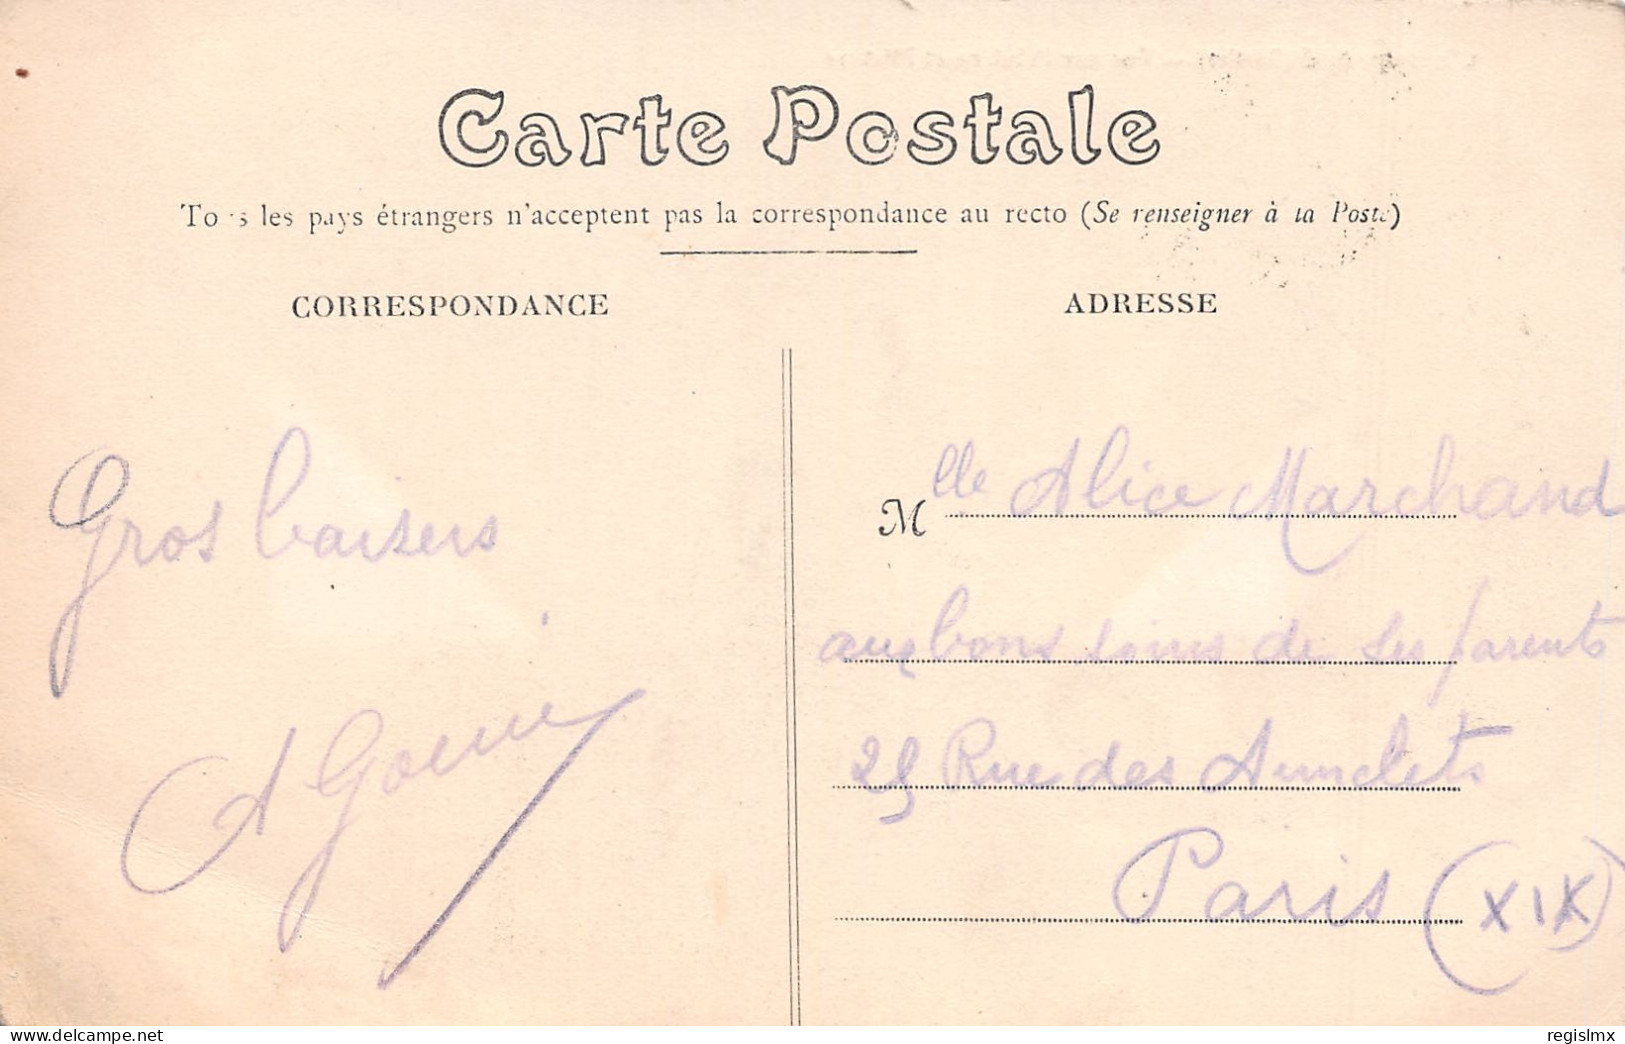 Carte Postale
Tous les pays étrangers n'acceptent pas la correspondance au recto (Se renseigner à la Poste)
CORRESPONDANCE
ADRESSE
Gros baisers
Mlle Alice Marchand
aux bons soins de ses parents
25 Rue des Annelets
Paris (XIX)
www.delcampe.net
regislmx